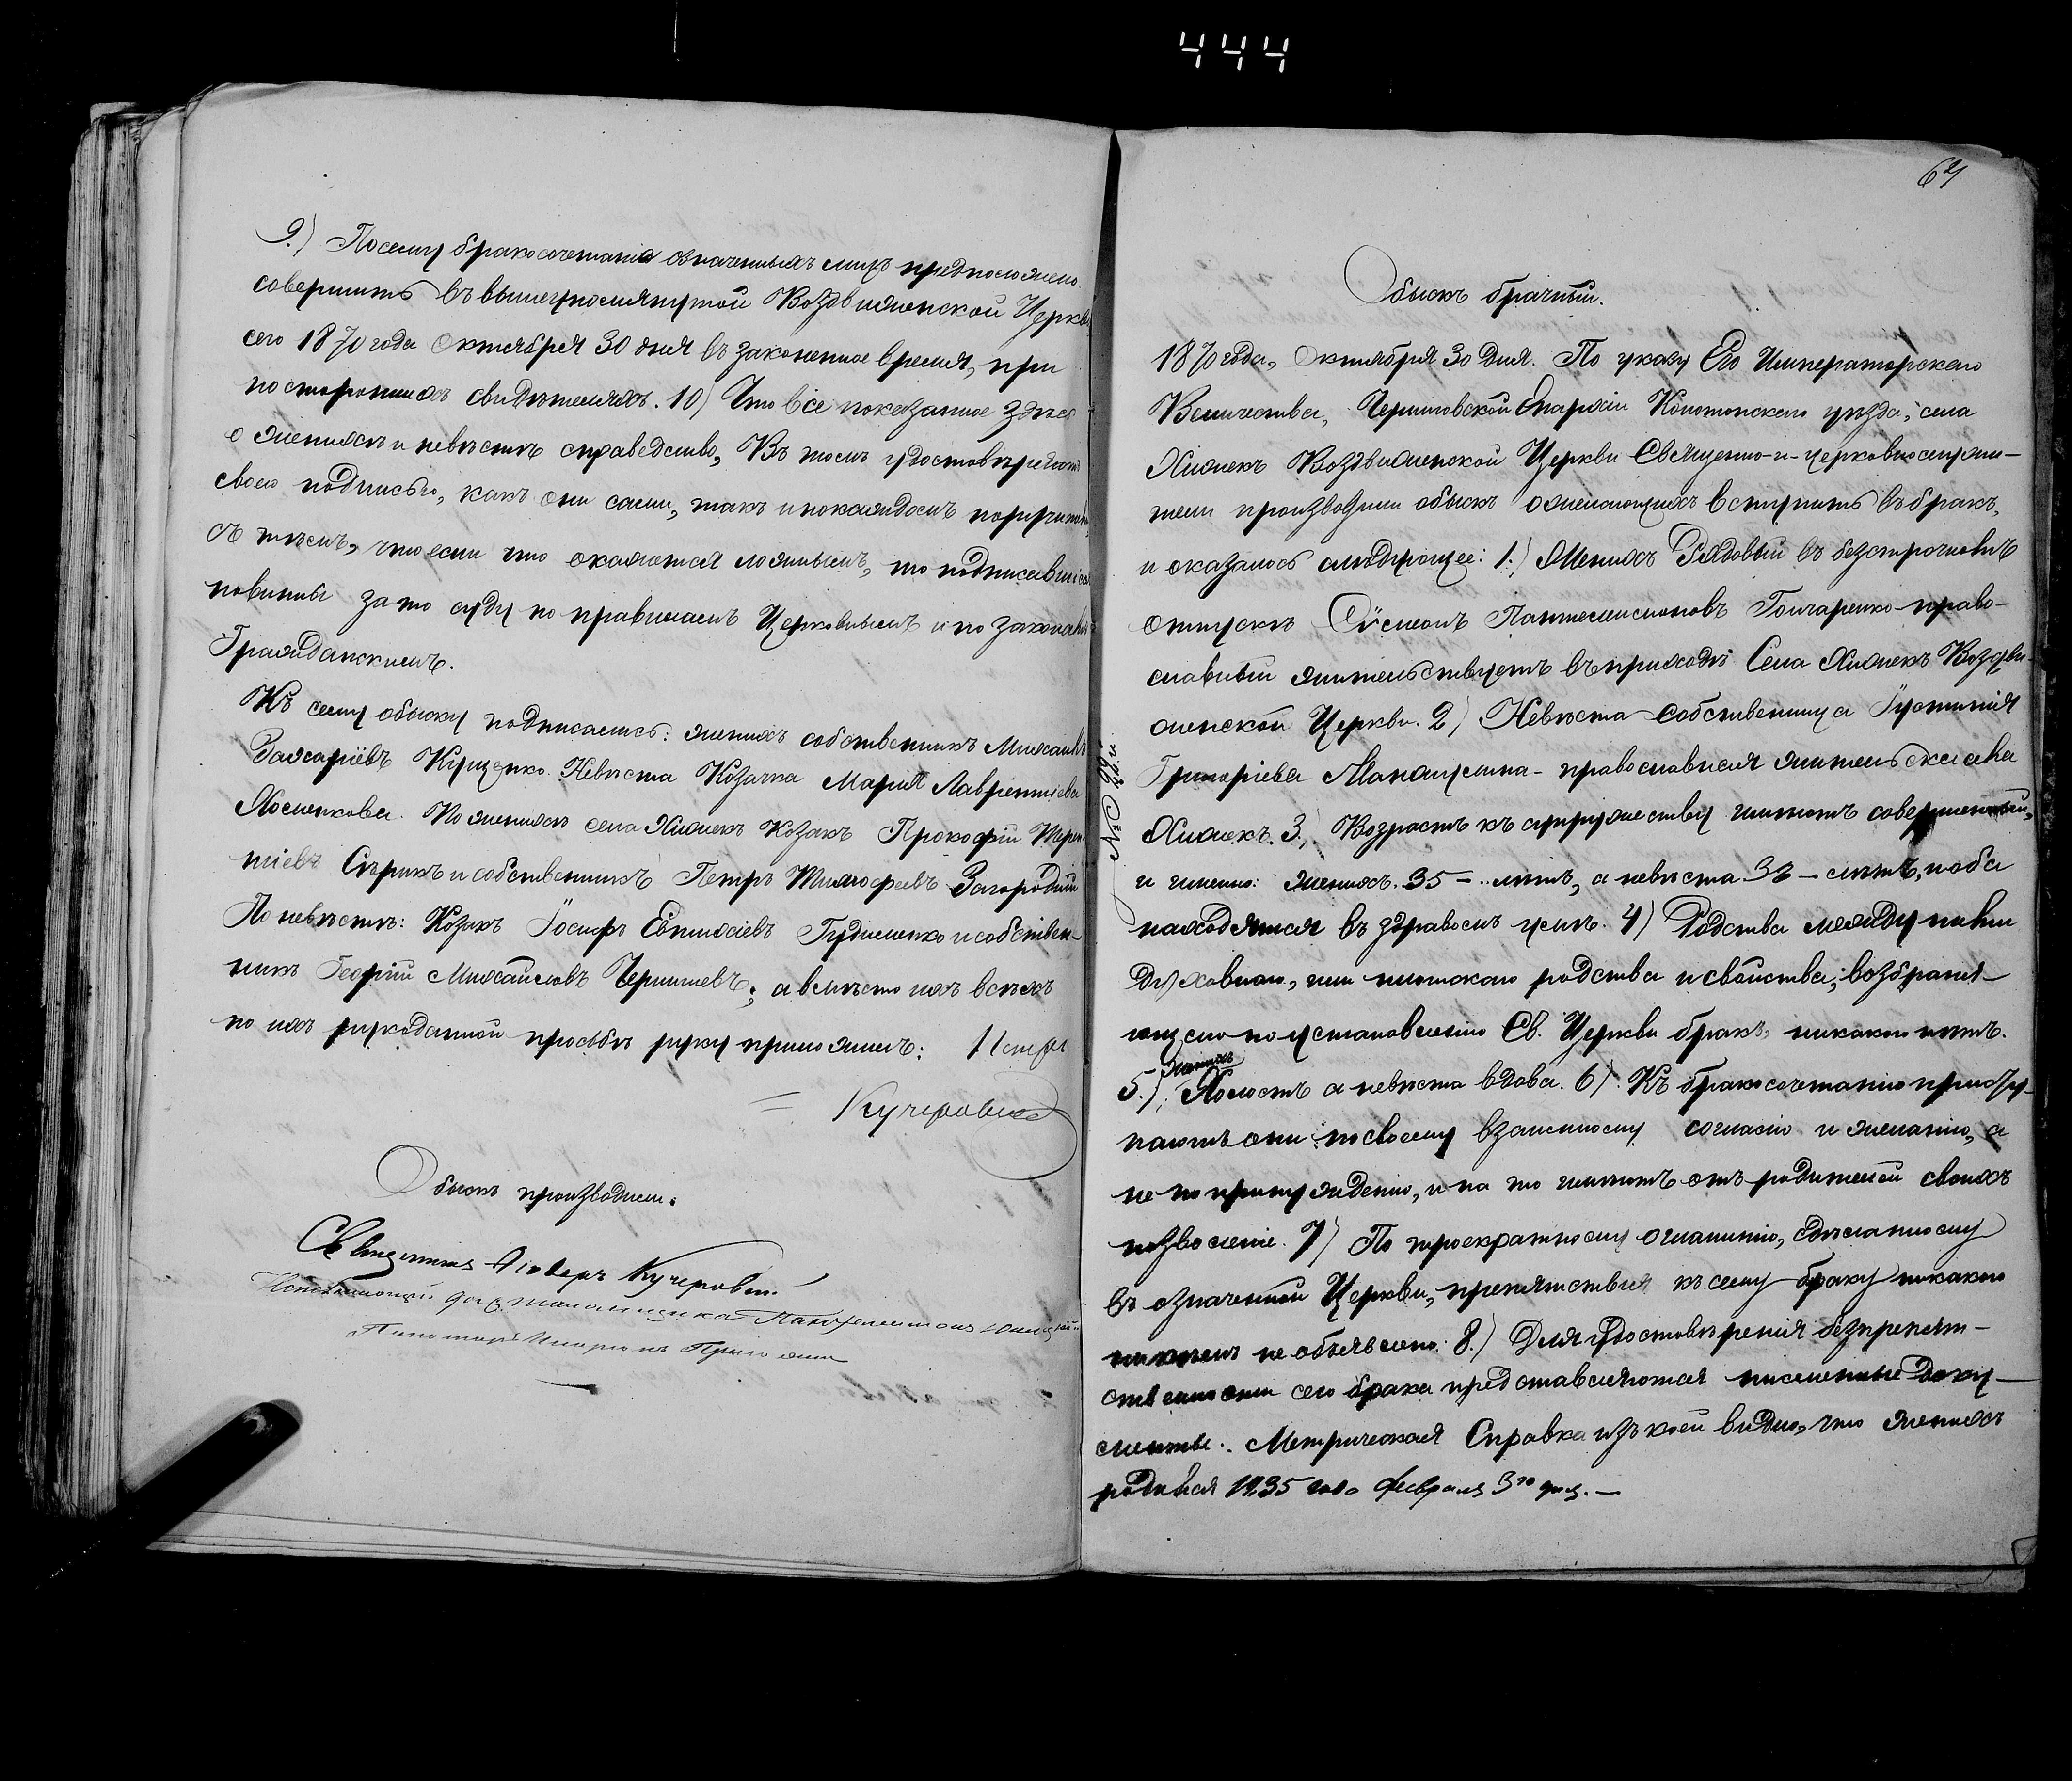 444
9.) Посему бракосочетаніе означенныхъ лицъ предположено
совершить въ вышеупомянутой Воздвиженской Церкви
сего 1870 года Октября 30 дня въ законенное время, при
постороннихъ свидѣтеляхъ. 10) Что все показанное здѣсь
о женихѣ и невѣстѣ справедливо, Въ томъ удостовѣряютъ
своею подписью, какъ они сами, такъ и по каждомъ поручители,
съ тѣмъ, что если что окажется ложнымъ, то подписавшіеся
повинны за то суду по правиламъ Церковнымъ и по законамъ
Гражданскимъ.
Къ сему обыску подписались: женихъ собственникъ Михаилъ
Захаріевъ Кущенко. Невѣста Козачка Марія Лаврентіева
Хоменкова. По женихѣ села Хижекъ Козакъ Прокофій Терен-
тіевъ Сѣрикъ и собственникъ Петръ Тимофеевъ Загородній
По невѣстѣ: Козакъ Іосифъ Евтихіевъ Гудименко и собствен-
никъ Георгій Михайловъ Чернишевъ; а вмѣсто ихъ всѣхъ
по ихъ рукоданной просьбѣ руку приложилъ:
Кучеровскій
Обыскъ производили:
Священникъ Кучеровскій.
Исправляющій
Пономарь
64
Обыскъ брачный.
1870 года, Октября 30 Дня. По указу Его Императорскаго
Величества, Черниговской Епархіи Конотопскаго уѣзда, села
Хижекъ Воздвиженской Церкви Священно-и-церковнослужи-
тели производили обыскъ о желающихъ вступить въ бракъ,
и оказалось слѣдующее: 1.) Женихъ Рядовый въ безсрочномъ
отпускѣ Сѵмеонъ Пантелеимоновъ Гончаренко-право-
славный жительствуетъ въ приходѣ Села Хижекъ Воздви-
женской Церкви. 2) Невѣста Собственница Іустинія
Григоріева - православная жительск села
Хижекъ. 3.) Возрастъ къ супружеству имѣютъ совершенный,
и именно: женихъ. 35 - лѣтъ, а невѣста 32 - лѣтъ, и оба
находятся въ здравомъ умѣ. 4) Родства между ними
духовнаго, или плотскаго родства и свойства, возбраня-
ющаго по установленію Св. Церкви бракъ, никакого нѣтъ.
5.) Женихъ Холостъ а невѣста вдова. 6) Къ бракосочетанію присту-
паютъ они по своему взаимному согласію и желанію, а
не по принужденію, и на то имѣютъ отъ родителей своихъ
позволеніе. 7) По троекратному оглашенію, сдѣланному
въ означенной Церкви, препятствія къ сему браку никакого
никѣмъ не объявлено. 8.) Для удостовѣренія безпрепят-
ственности сего брака представляются письменные доку-
менты. Метрическая Справка изъ коей видно, что женихъ
родился 1835 года Февраля 3го дня.-